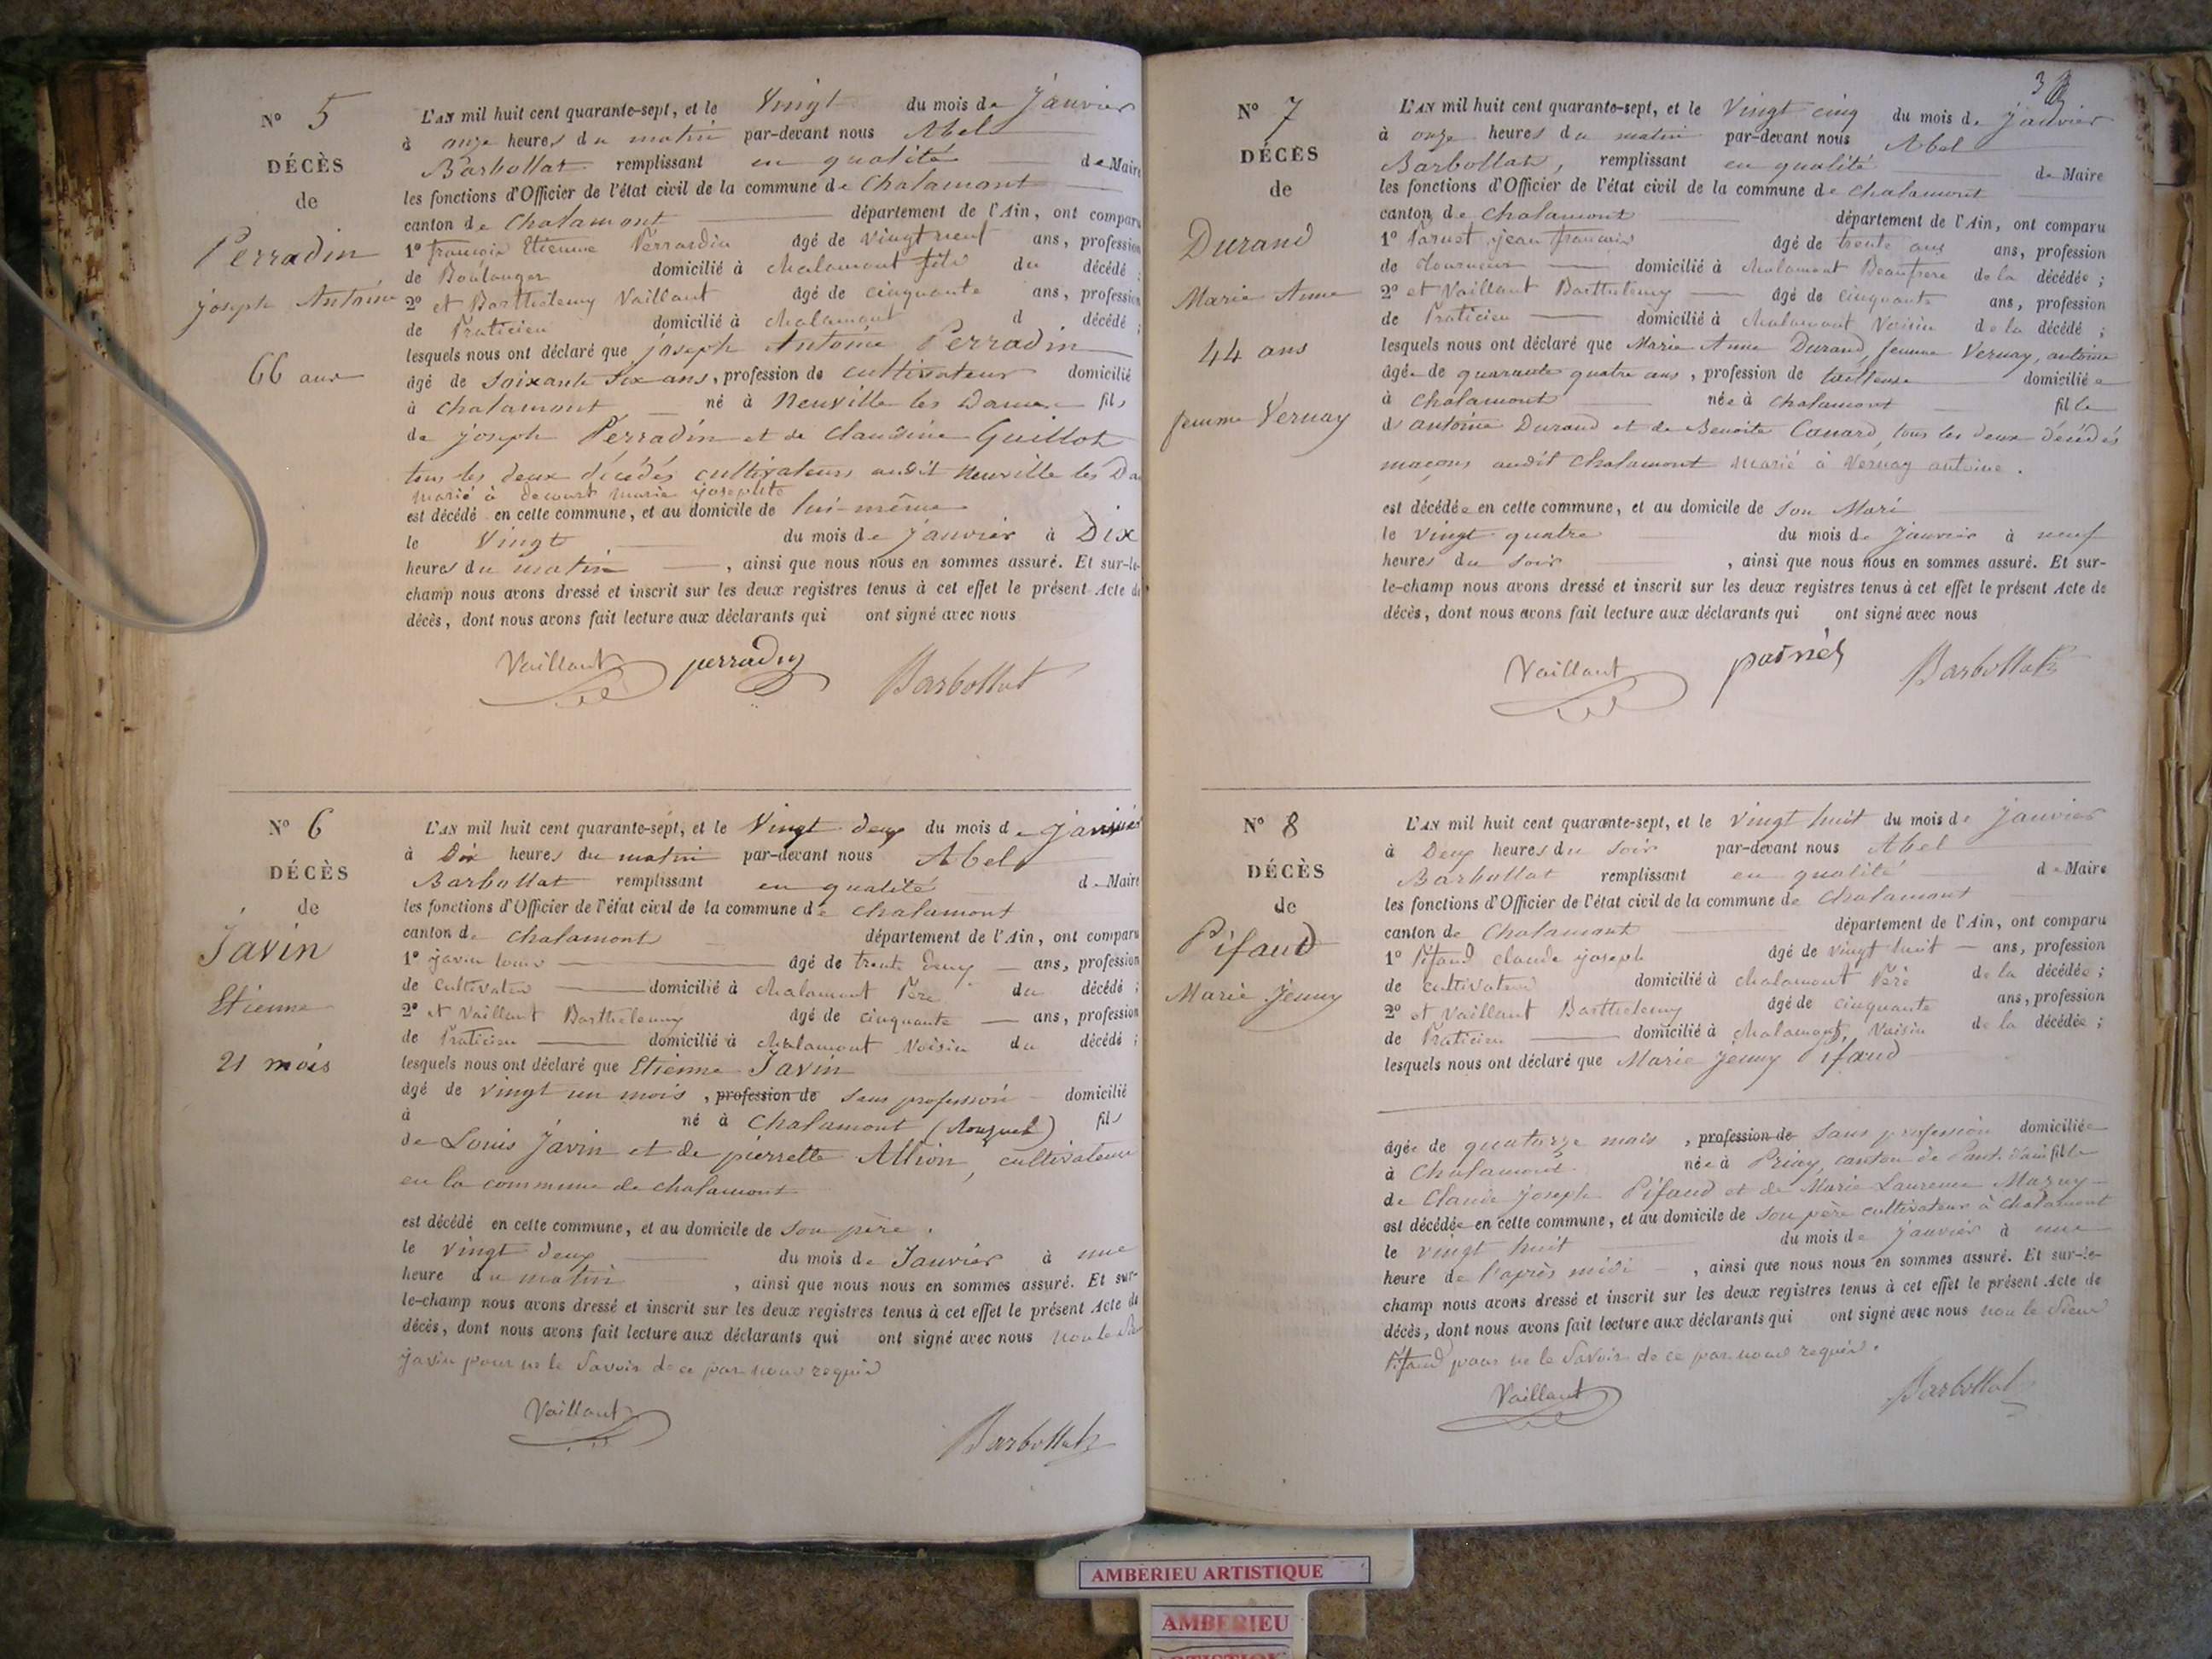 N° 5
DÉCÈS
de
Perradin
joseph Antoine
66 ans
L'AN mil huit cent quarante-sept, et le Vingt du mois de Janvier
à onze heures du matin par-devant nous Abel
Barbollat remplissant en qualité de Maire
les fonctions d'Officier de l'état civil de la commune de Chalamont
canton de Chalamont département de l'Ain, ont comparu
1° françois Etienne Perrardin âgé de vingt neuf ans, profession
de Boulanger domicilié à chalamont fils du décédé ;
2° et Barthelemy Vaillant âgé de cinquante ans, profession
de Praticien domicilié à chalamont d décédé ;
lesquels nous ont déclaré que joseph Antoine Perradin
âgé de soixante six ans, profession de cultivateur domicilié
à chalamont né à Neuville les Dames fils
de joseph Perradin et de Claudine Guillot
tous les deux décédés cultivateurs audit Neuville les Da
marié à decourt marie josephte
est décédé en cette commune, et au domicile de lui-même
le Vingt du mois de janvier à Dix
heures du matin , ainsi que nous nous en sommes assuré. Et sur-le-
champ nous avons dressé et inscrit sur les deux registres tenus à cet effet le présent Acte de
décès, dont nous avons fait lecture aux déclarants qui ont signé avec nous
Vaillant perradin Barbollat
N° 6
DÉCÈS
de
Javin
Etienne
21 mois
L'AN mil huit cent quarante-sept, et le Vingt deux du mois de janvier
à Dix heures du matin par-devant nous Abel
Barbollat remplissant en qualité de Maire
les fonctions d'Officier de l'état civil de la commune de chalamont
canton de chalamont département de l'Ain, ont comparu
1° javin louis âgé de trente deux ans, profession
de cultivateur domicilié à chalamont Père du décédé ;
2° et Vaillant Barthelemy âgé de cinquante ans, profession
de Praticien domicilié à chalamont Voisin du décédé ;
lesquels nous ont déclaré que Etienne Javin
âgé de vingt un mois , profession de sans profession domicilié
à né à Chalamont fils
de Louis Javin et de pierrette Allion, cultivateurs
en la commune de chalamont
est décédé en cette commune, et au domicile de son père.
le vingt deux du mois de Janvier à une
heure du matin , ainsi que nous nous en sommes assuré. Et sur-
le-champ nous avons dressé et inscrit sur les deux registres tenus à cet effet le présent Acte de
décès, dont nous avons fait lecture aux déclarants qui ont signé avec nous non le
javin pour ne le savoir de ce par nous requis
Vaillant
Barbollat
3
N° 7
DÉCÈS
de
Durand
Marie Anne
44 ans
femme Vernay
L'AN mil huit cent quarante-sept, et le Vingt cinq du mois de janvier
à onze heures du matin par-devant nous Abel
Barbollat, remplissant en qualité de Maire
les fonctions d'Officier de l'état civil de la commune de chalamont
canton de chalamont département de l'Ain, ont comparu
1° jean françois âgé de trente ans, profession
de domicilié à chalamont Beaufrère de la décédée ;
2° et Vaillant Barthelemy âgé de cinquante ans, profession
de Praticien domicilié à chalamont Voisin de la décédé ;
lesquels nous ont déclaré que Marie Anne Durand, femme Vernay, antoine
âgée de quarante quatre ans , profession de tailleuse domiciliée
à chalamont née à chalamont fille
d antoine Durand et de Benoite Canard, tous les deux décédés
maçons audit chalamont marié à Vernay antoine.
est décédée en cette commune, et au domicile de son Mari
le vingt quatre du mois de janvier à neuf
heures du soir , ainsi que nous nous en sommes assuré. Et sur-
le-champ nous avons dressé et inscrit sur les deux registres tenus à cet effet le présent Acte de
décès, dont nous avons fait lecture aux déclarants qui ont signé avec nous
Vaillant Barbollat
N° 8
DÉCÈS
de
Pifaud
Marie Jenny
L'AN mil huit cent quarante-sept, et le vingt huit du mois de janvier
à Deux heures du soir par-devant nous Abel
Barbollat remplissant en qualité de Maire
les fonctions d'Officier de l'état civil de la commune de chalamont
canton de chalamont département de l'Ain, ont comparu
1° Pifaud claude joseph âgé de vingt huit ans, profession
de cultivateur domicilié à chalamont Père de la décédée ;
2° et Vaillant Barthelemy âgé de cinquante ans, profession
de Praticien domicilié à chalamont, Voisin de la décédée ;
lesquels nous ont déclaré que Marie Jenny Pifaud
âgée de quatorze mois , profession de sans profession domiciliée
à Chalamont née à Priay, canton de Pont d'ain fille
de Claude joseph Pifaud et de Marie Laurence
est décédée en cette commune, et au domicile de son père cultivateur à chalamont
le vingt huit du mois de janvier à une
heure de l'après midi , ainsi que nous nous en sommes assuré. Et sur-le-
champ nous avons dressé et inscrit sur les deux registres tenus à cet effet le présent Acte de
décès, dont nous avons fait lecture aux déclarants qui ont signé avec nous non le Sieur
Pifaud pour ne le savoir de ce par nous requis.
Vaillant
Barbollat
AMBERIEU ARTISTIQUE
AMBERIEU
ARTISTIQUE